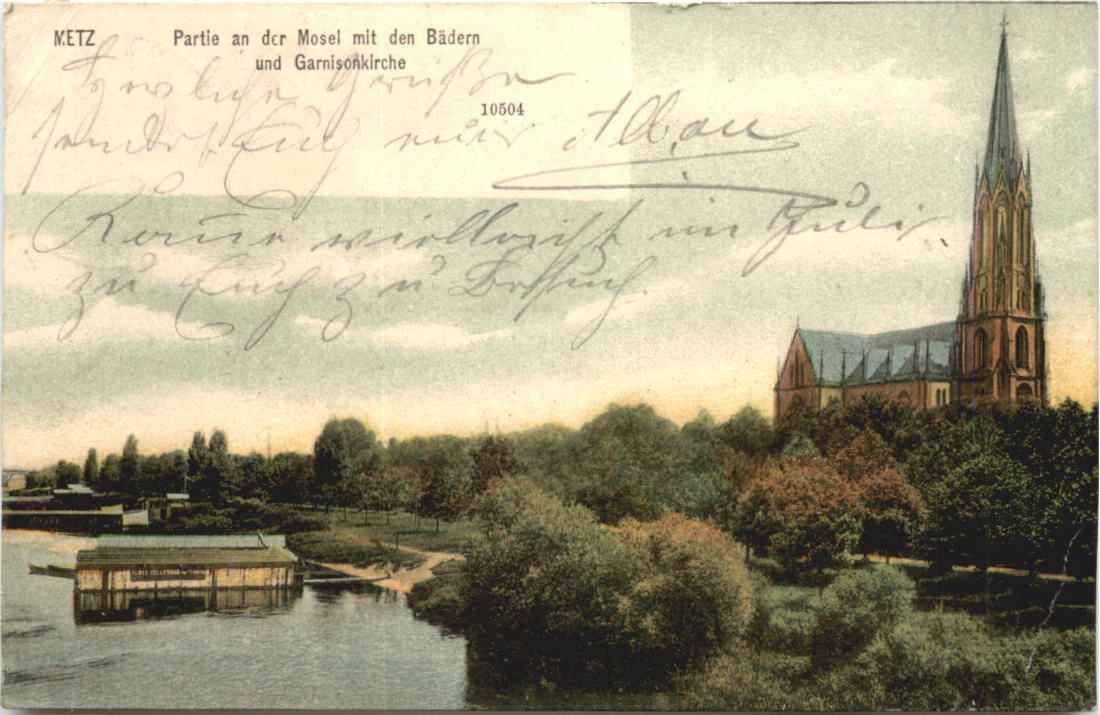 METZ Partie an der Mosel mit den Bädern
und Garnisonkirche
10504
Herzliche Grüße
sendet Euch euer Alban
Komme vielleicht im Juli
zu Euch zu Besuch.